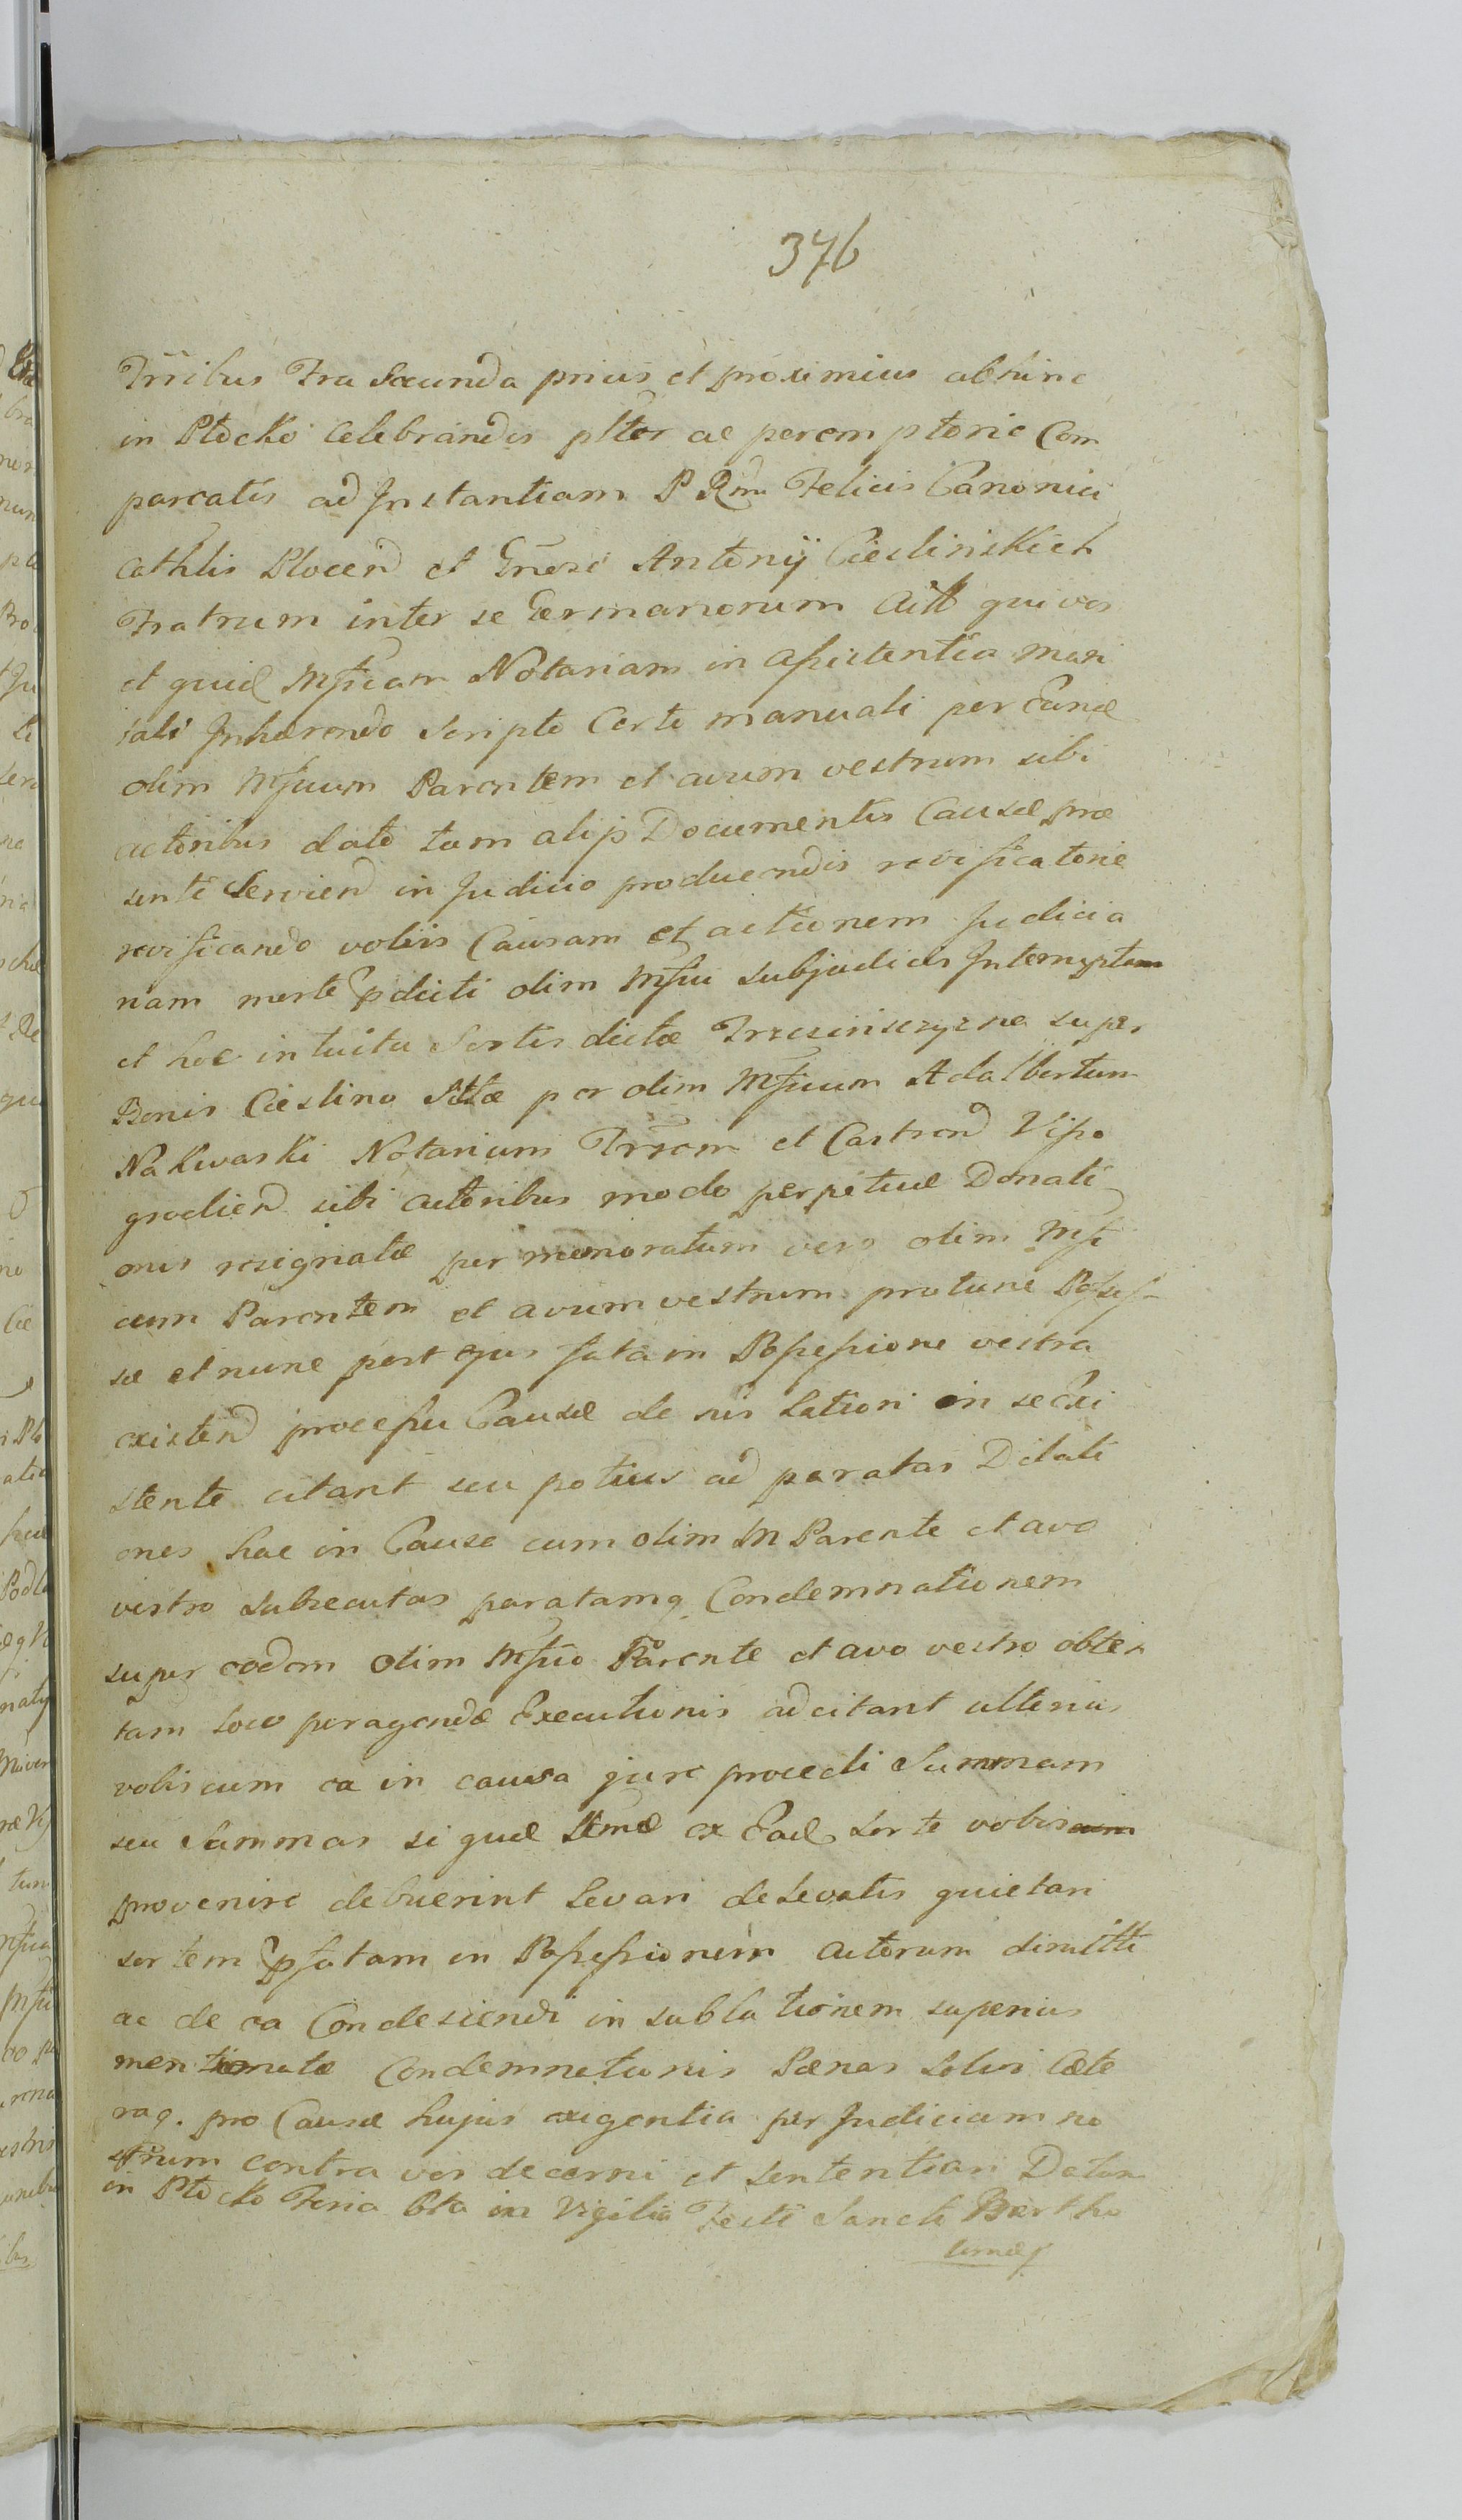 376
Trribus Fra Secunda prius et proximius abhinc
in Płocko celebrandis pltter ac peremptorie Com
pareatis ad Instantiam P Rndi Felicis Canonici
Cathlis Plocen et Gnosi Antonij Cieslinskich
Fratrum inter se Germanorum Actt qui vos
et quid Mficam Notariam in assistentia mari
tali Inhærendo scripto certo manuali per Eund
olim Mficum Parentem et avum vestrum sibi
actoribus dato tam alijs Documentis Causæ præ
senti Servien in Judicio producendis revificatorie
revificando vobis Causam et actionem Judicia
riam morte pdicti olim Mfici subjudicis Interruptam
et hoc intuitu Sortis dictæ super
Bonis Cieslino Sittæ per olim Mficum Adalbertum
Nakwaski Notarium Trrem et Castren Viso
gradien sibi actoribus modo perpetuæ Donati
onis resignatæ per memoratum vero olim Mfi
cum Parentem et avum vestrum pro tunc Posses
sæ et nunc post ejus fata in Possessione vestra
existen processu Causæ de nis Lationi in se Exi
stente citant seu potius ad paratas Dilati
ones hac in Causa cum olim M Parente et avo
vestro subsecutas paratamq Condemnationem
super eodem olim Mfico Parente et avo vestro obten
tam loco peragendæ Executionis adcitant ulterius
vobiscum ea in causa jure procedi Summam
seu Summas si quæ ex Ead Sorte vobis
provenire debuerint Levari de Levatis quietari
sortem pfatam in Possessionem actorum dimitti
ac de ea Condesiendi in sublationem superius
mentionatæ Condemnationis Pænas Solvi Cæte
raq. pro Causæ hujus exigentia per Judicium no
strum contra vos decerni et sententiari Datum
in Płocko Feria 6ta in Vigilia Festi Sancti Bartho
lomæj